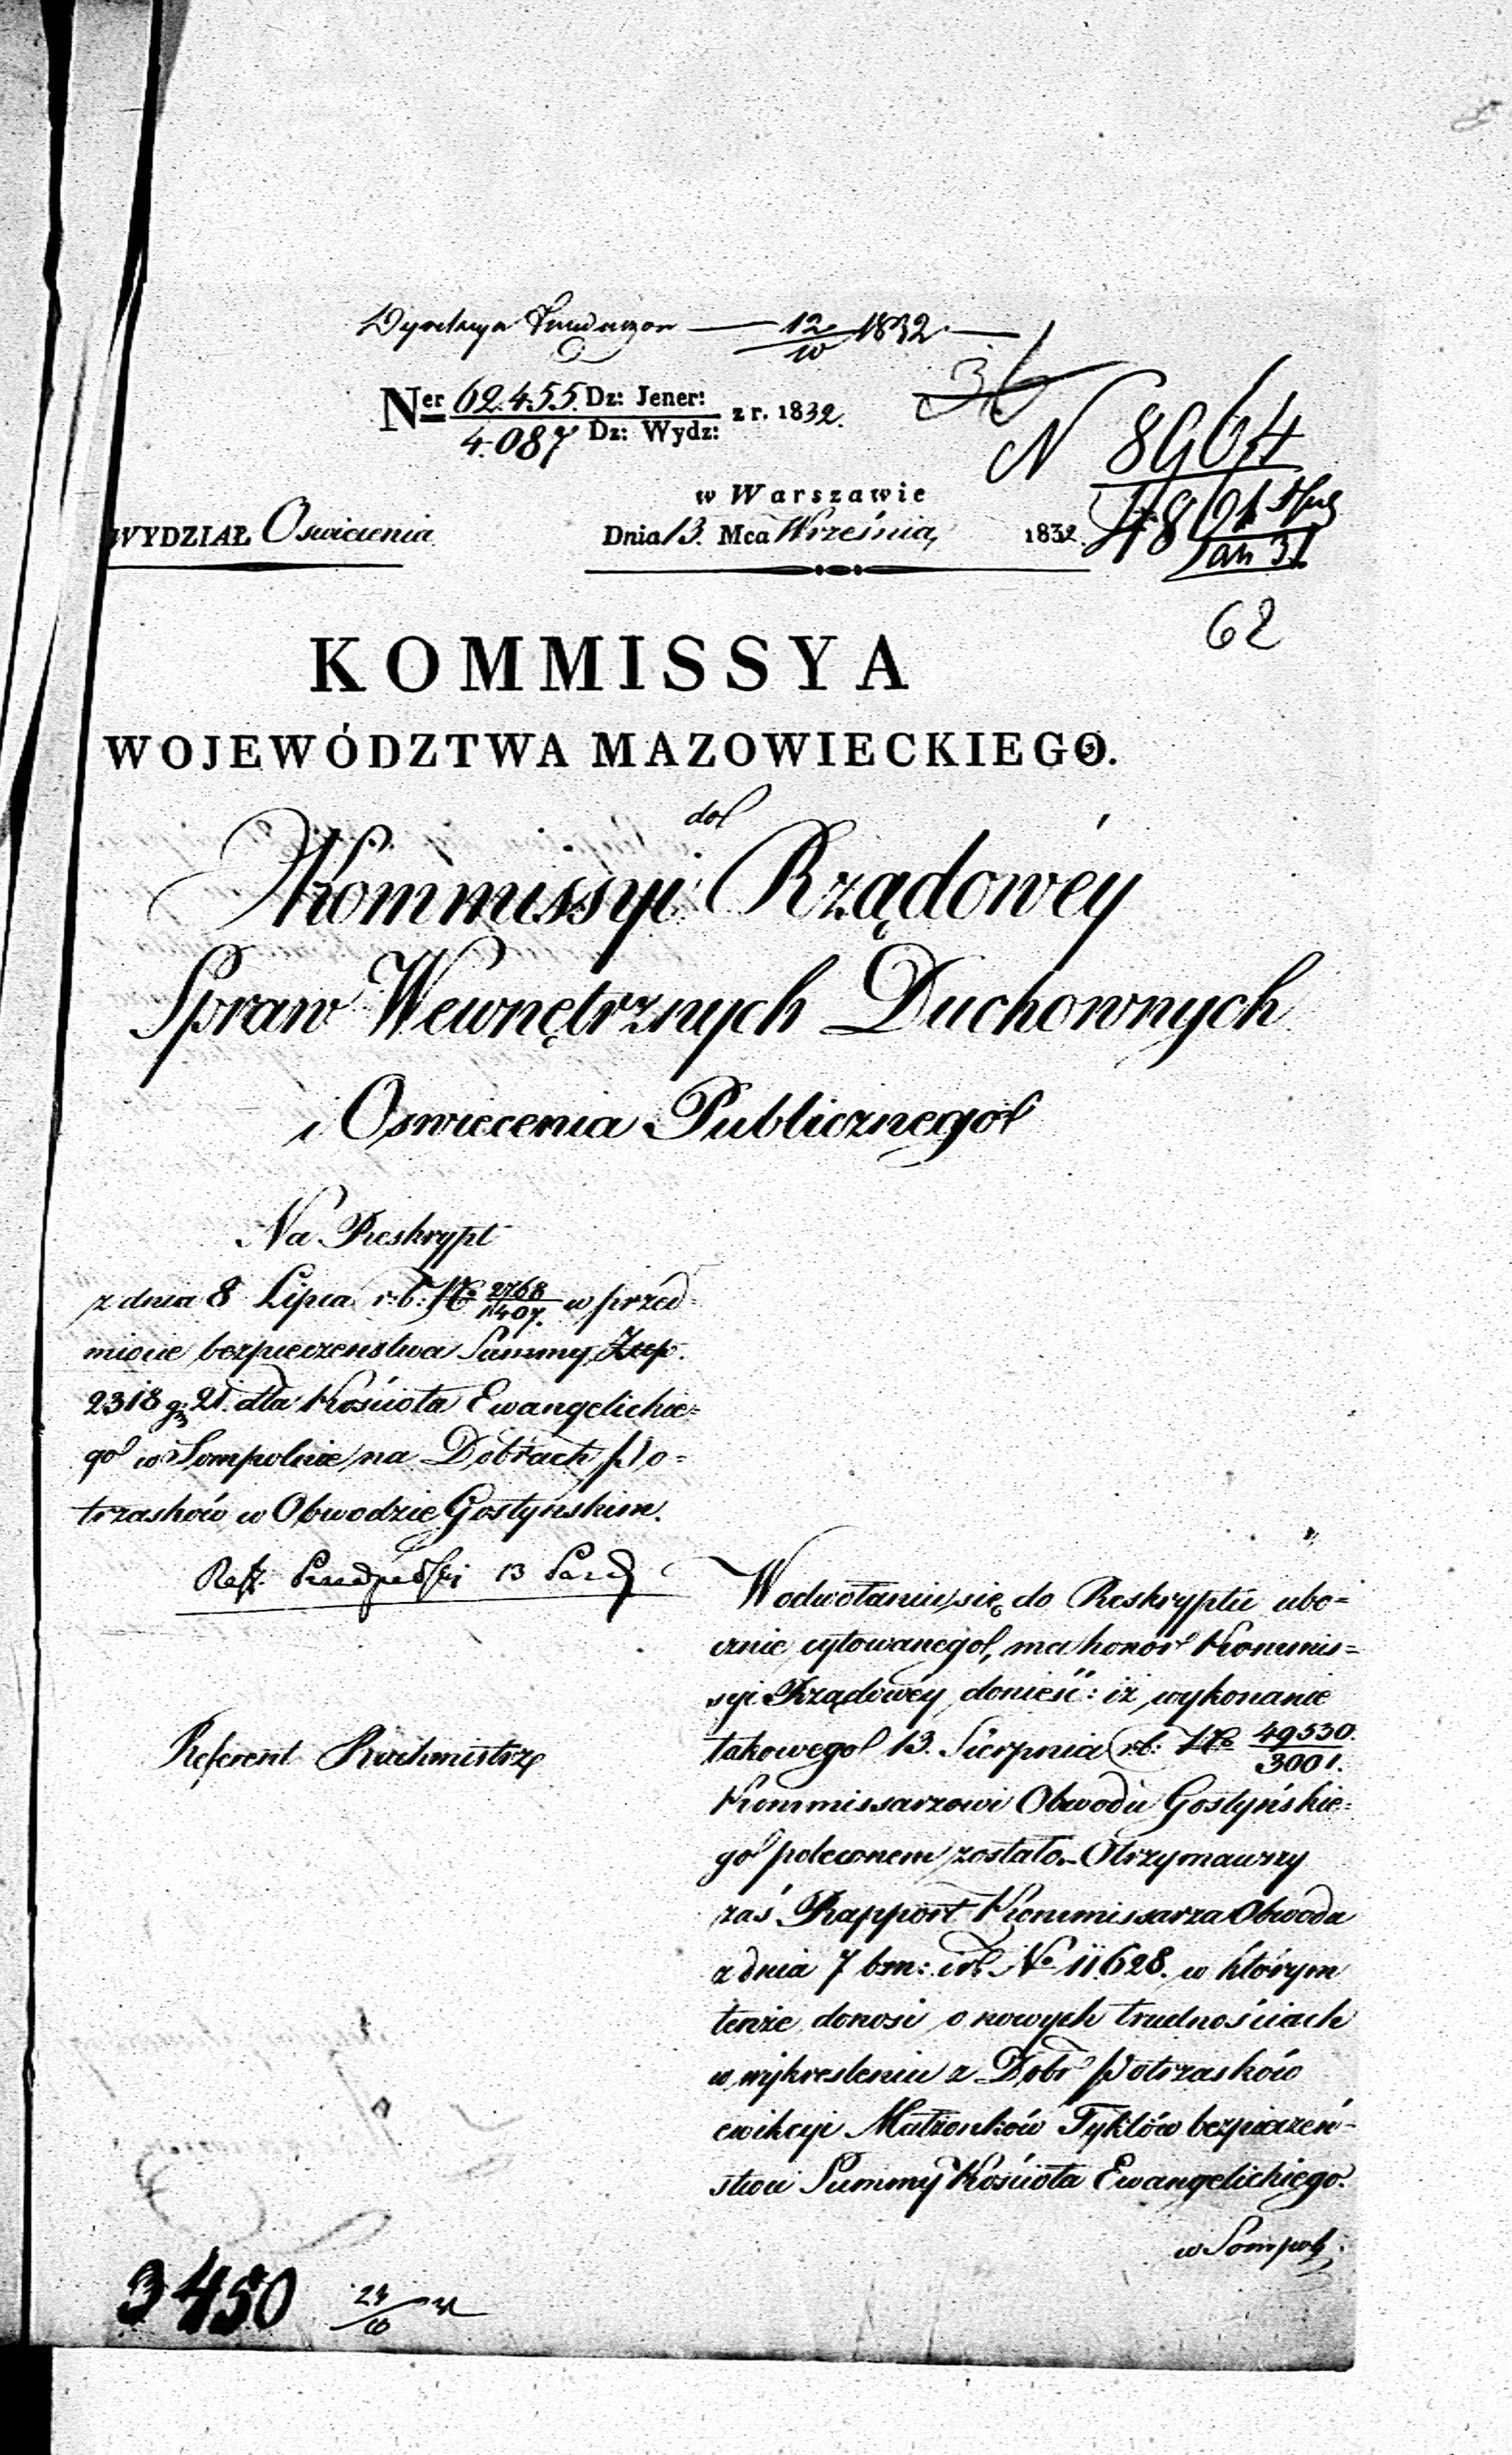 12/10 1832
36
Ner 62455 Dz: Jener: z r. 1832.
4087 Dz: Wydz:
N 8964
4861
62
w Warszawie
WYDZIAŁ Oswiecenia
Dnia 13. Mca Września, 1832.
KOMMISSYA
WOJEWÓDZTWA MAZOWIECKIEGO.
do
Kommissyi Rządowéy
Spraw Wewnętrznych Duchownych
i Oswiecenia Publicznego
Na Reskrypt
z dnia 8 Lipca r. b. No 2768/11407. w przed-
miocie bezpieczenstwa Summy Złp.
2318 gr 21. dla Kościoła Ewangelickie-
go w Sompolnie na Dobrach Po-
trasków w Obwodzie Gostyńskim.
Referent Rachmistrz
W odwołaniu się do Reskryptu ubo-
cznie cytowanego, ma honor Kommis-
syi Rządowéy donieść: iż wykonanie
takowego 13. Sierpnia r. b. No 49530./3001.
Kommissarzowi Obwodu Gostyńskie-
go poleconem zostało. Otrzymawszy
zaś Rapport Kommissarza Obwodu
z dnia 7 bm: i r. No 11.628. w którym
tenże donosi o nowych trudnościach
w wykresleniu z Dobr Potrzasków
ewikcyi Małżonków Tyklów bezpieczeń-
stwa Summy Kościoła Ewangelickiego.
w Sompol
3450
24/10